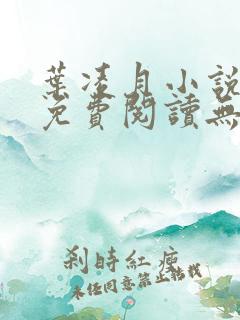 葉凌月小說
免費閱讀無
剎時紅塵
未经同意禁止转载